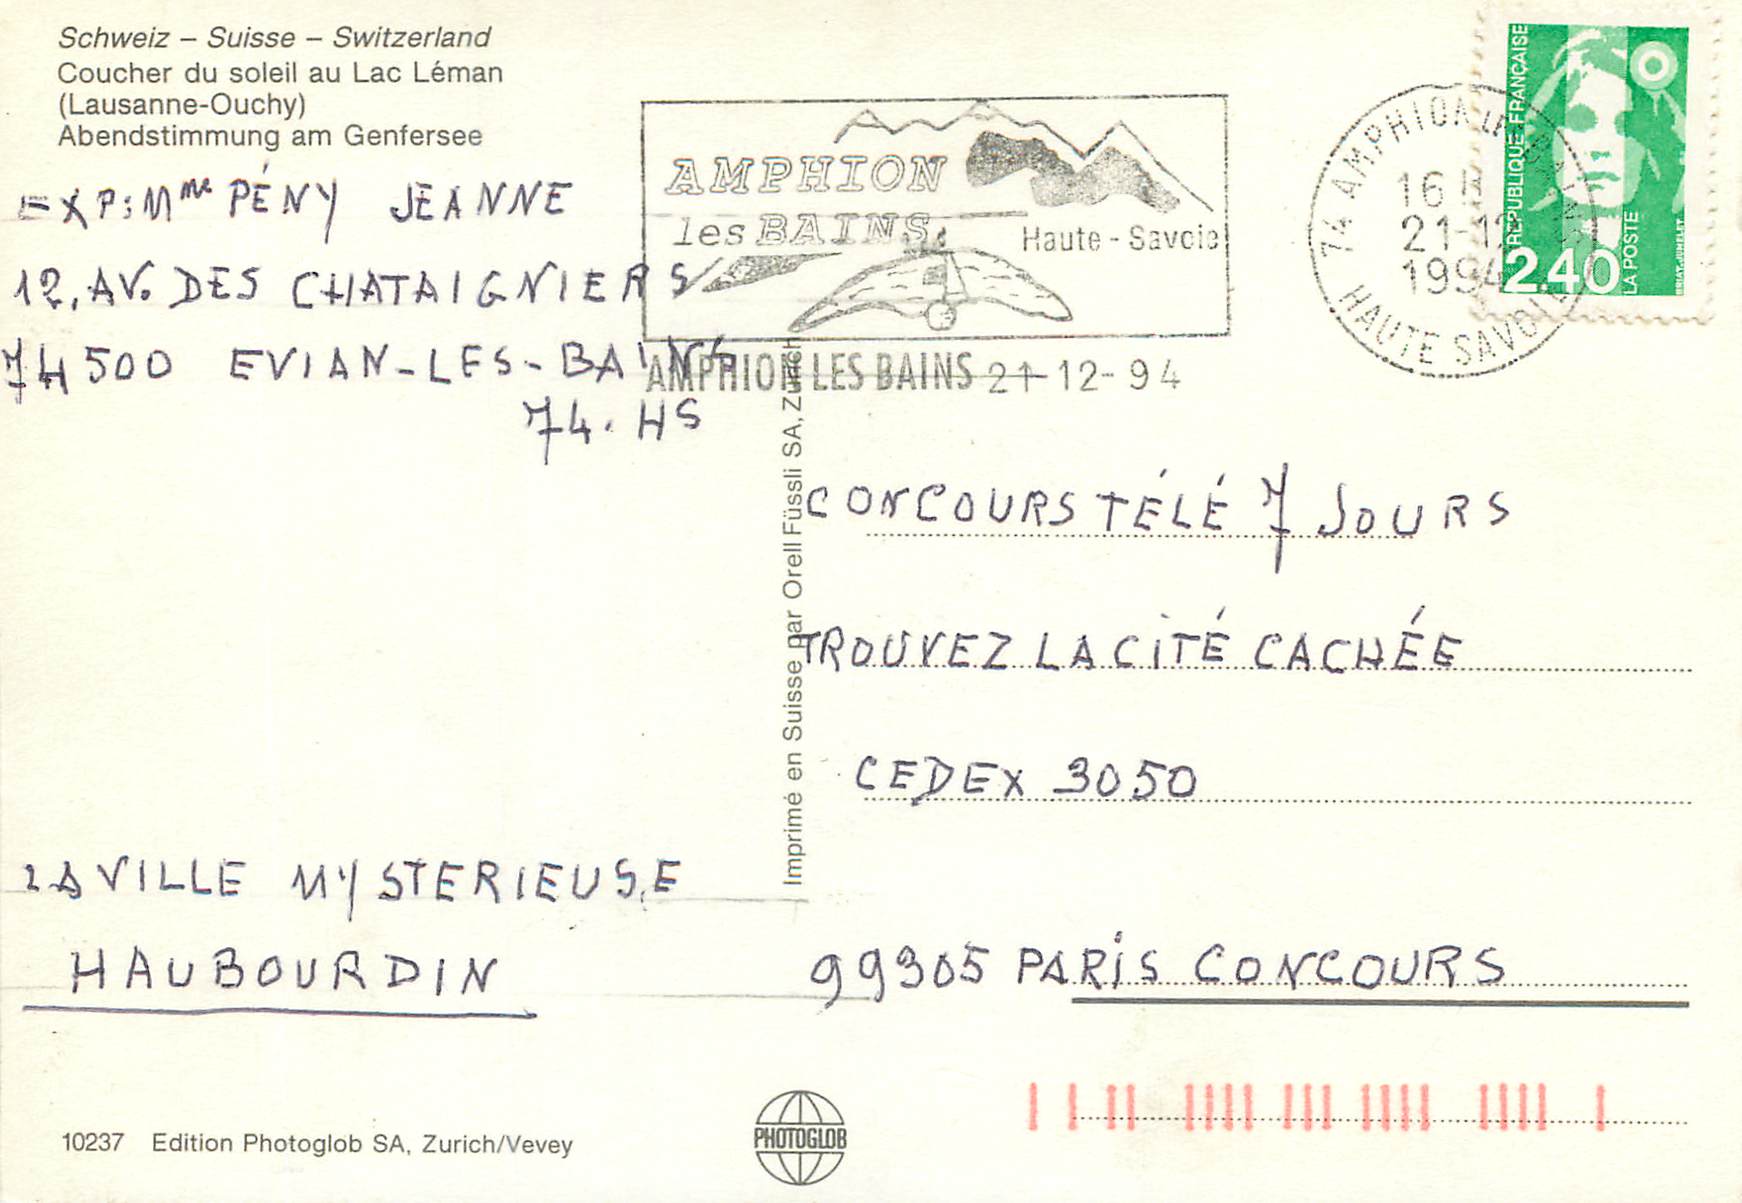 Schweiz – Suisse – Switzerland
Coucher du soleil au Lac Léman
(Lausanne-Ouchy)
Abendstimmung am Genfersee
EXP: Mme PÉNY JEANNE
12, AV. DES CHATAIGNIERS
74500 EVIAN-LES-BAINS
74. HS
LA VILLE MYSTERIEUSE
HAUBOURDIN
10237 Edition Photoglob SA, Zurich/Vevey
AMPHION
les BAINS
Haute-Savoie
AMPHION LES BAINS 21-12-94
Imprimé en Suisse par Orell Füssli SA, Zürich
PHOTOGLOB
74 AMPHION LES BAINS
16 H
21-12
1994
HAUTE SAVOIE
REPUBLIQUE FRANÇAISE
2,40
LA POSTE
CONCOURS TÉLÉ 7 JOURS
TROUVEZ LA CITÉ CACHÉE
CEDEX 3050
99305 PARIS CONCOURS